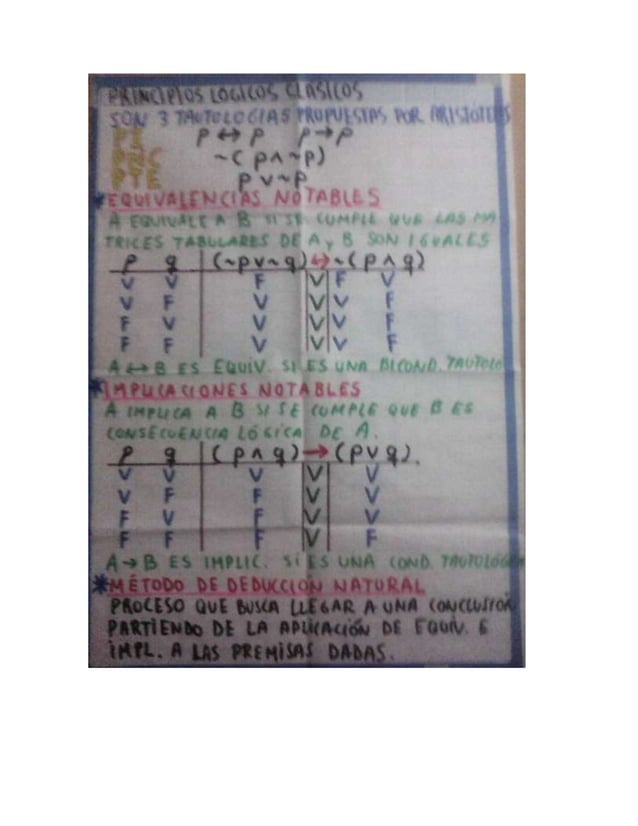 PRINCIPIOS LOGICOS CLASICOS
SON 3 TAUTOLOGIAS PROPUESTAS POR ARISTÓTELES
PI p ↔ p p → p
PNC ~( p ∧ ~p)
PTE p ∨ ~p
*EQUIVALENCIAS NOTABLES
A EQUIVALE A B SI SE CUMPLE QUE LAS MA
TRICES TABULARES DE A y B SON IGUALES
p q (~p ∨ ~q) ↔ ~(p ∧ q)
V V F V F V
V F V V V F
F V V V V F
F F V V V F
A ↔ B ES EQUIV. SI ES UNA BICOND. TAUTOLO
*IMPLICACIONES NOTABLES
A IMPLICA A B SI SE CUMPLE QUE B ES
CONSECUENCIA LÓGICA DE A.
p q (p ∧ q) → (p ∨ q).
V V V V V
V F F V V
F V F V V
F F F V F
A → B ES IMPLIC. SI ES UNA COND. TAUTOLÓG
*MÉTODO DE DEDUCCIÓN NATURAL
PROCESO QUE BUSCA LLEGAR A UNA CONCLUSIÓN
PARTIENDO DE LA APLICACIÓN DE EQUIV. E
IMPL. A LAS PREMISAS DADAS.